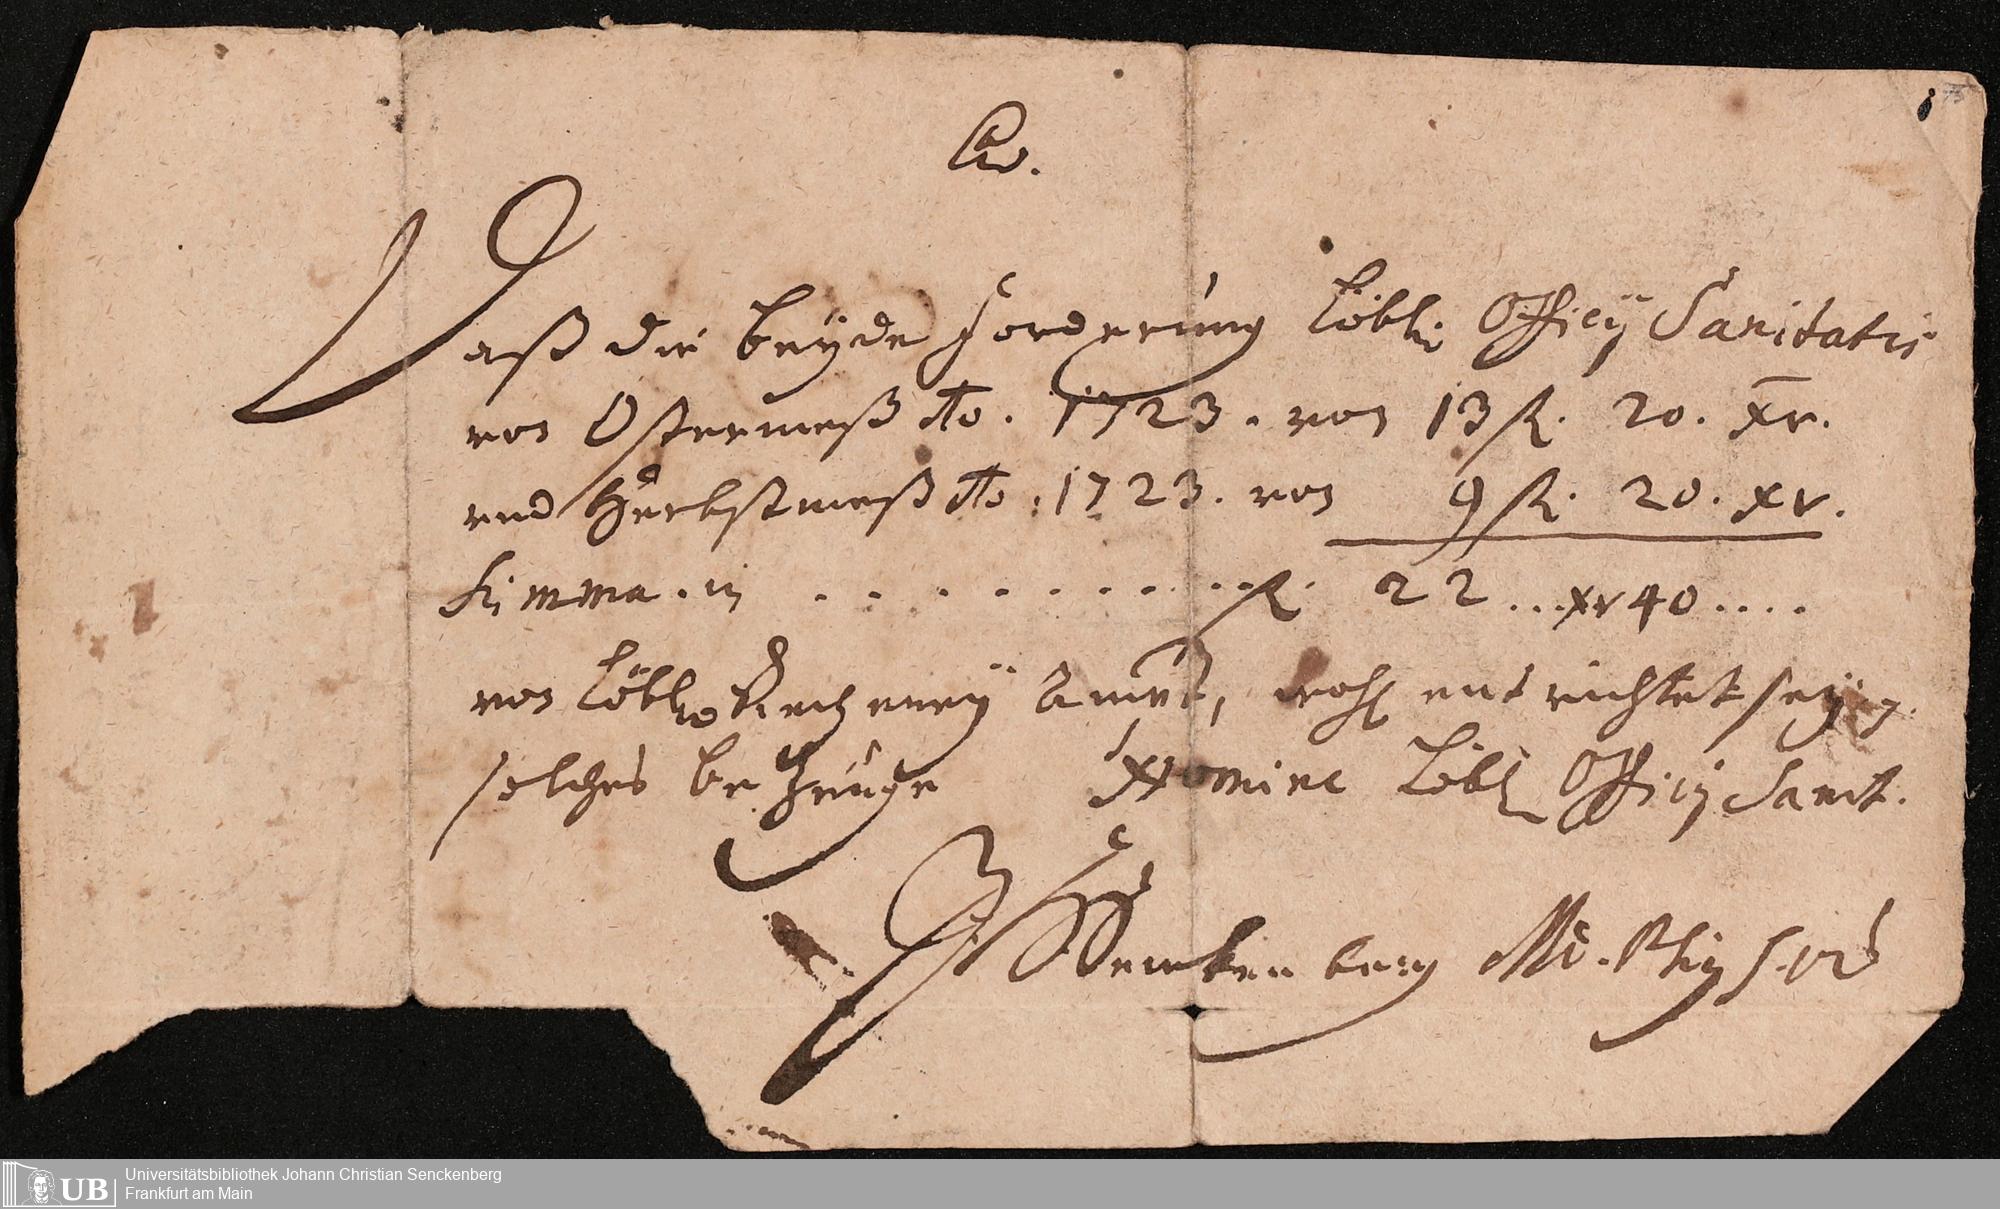 Daß die beyde Forderung Löbl. Officij Sanitatis
von Ostermeß Ao. 1723. von 13 fl. 20. xr.
und Herbstmeß Ao. 1723. von 9 fl. 20. xr.
Summa. in . . . . . . . . . . fl. 22 ... xr 40 ....
von Löbl. Recheney Ambt, wohl entrichtet seyn
solches bezeuge Nomine Löbl Officij Sanit.
Senckenberg MD. Physicus
Universitätsbibliothek Johann Christian Senckenberg
UB Frankfurt am Main